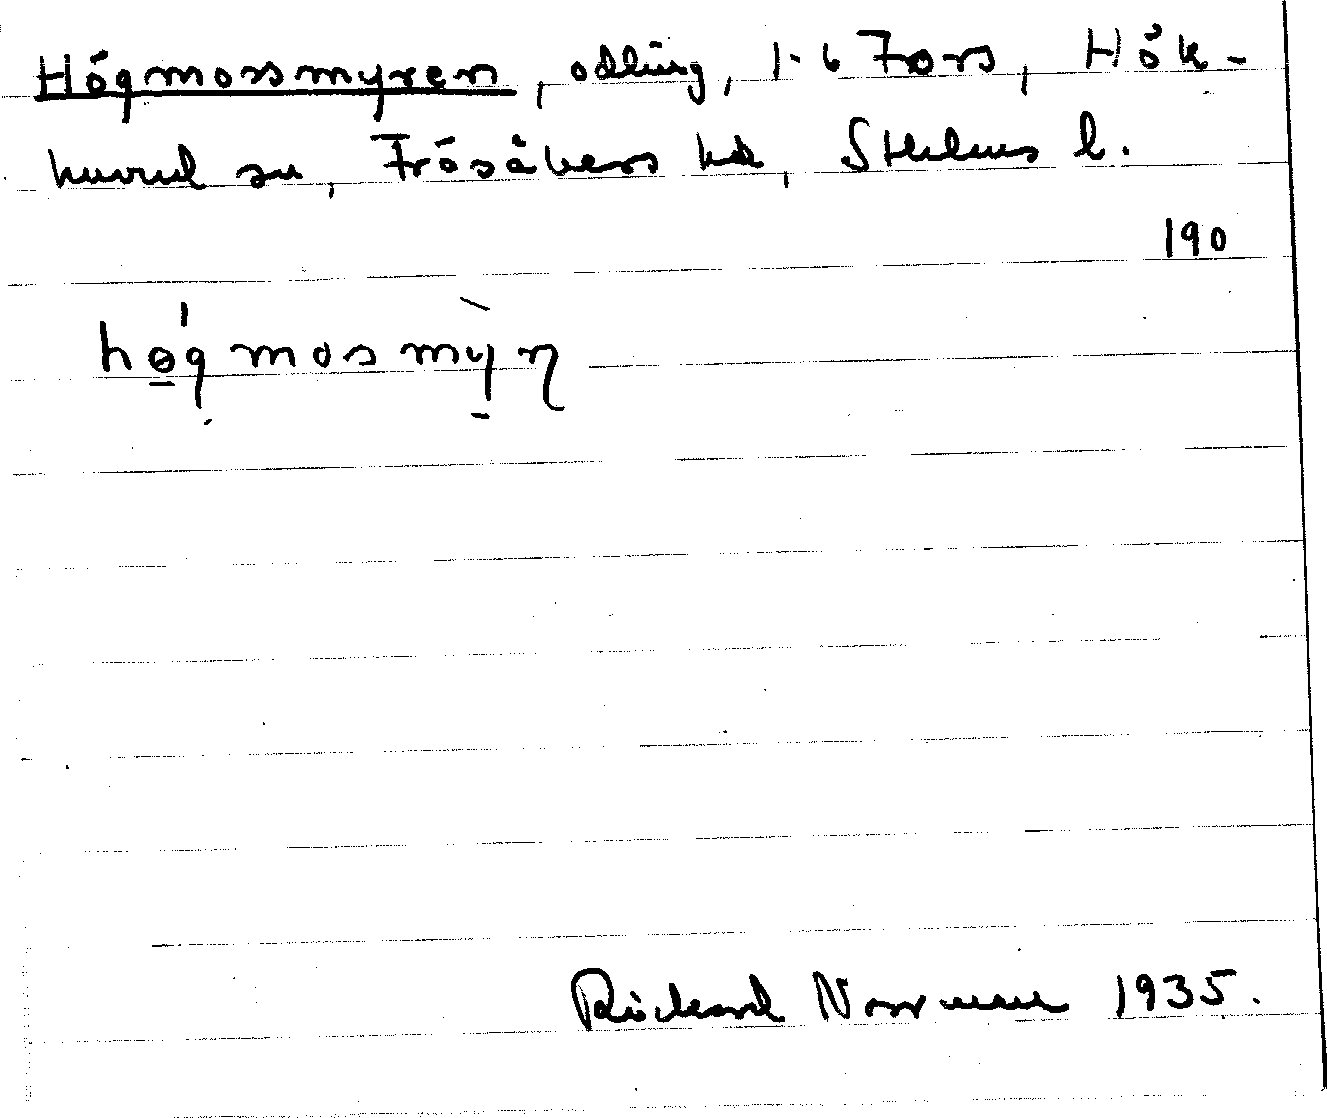 Högmossmyren, odling, 1-6 Fors, Hök-
huvud sn, Frösåkers hd, Sthlms l.
190
høgmosmyn
Richard Norrman 1935.